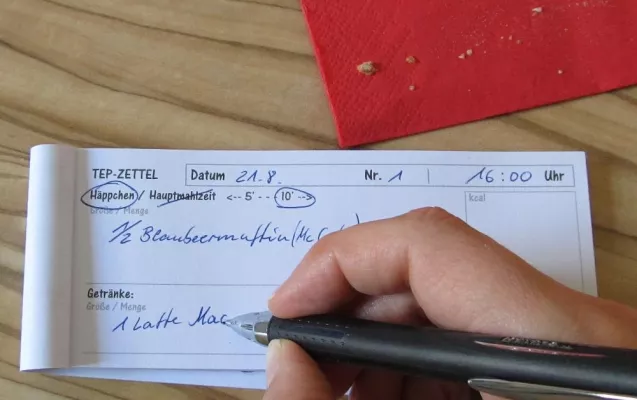 TEP-ZETTEL Datum 21.8. Nr. 1 16:00 Uhr
Häppchen / Hauptmahlzeit <-- 5' - - 10' --> kcal
Größe / Menge
1/2 Blaubeermuffin (Mc
Getränke:
Größe / Menge
1 Latte Mac